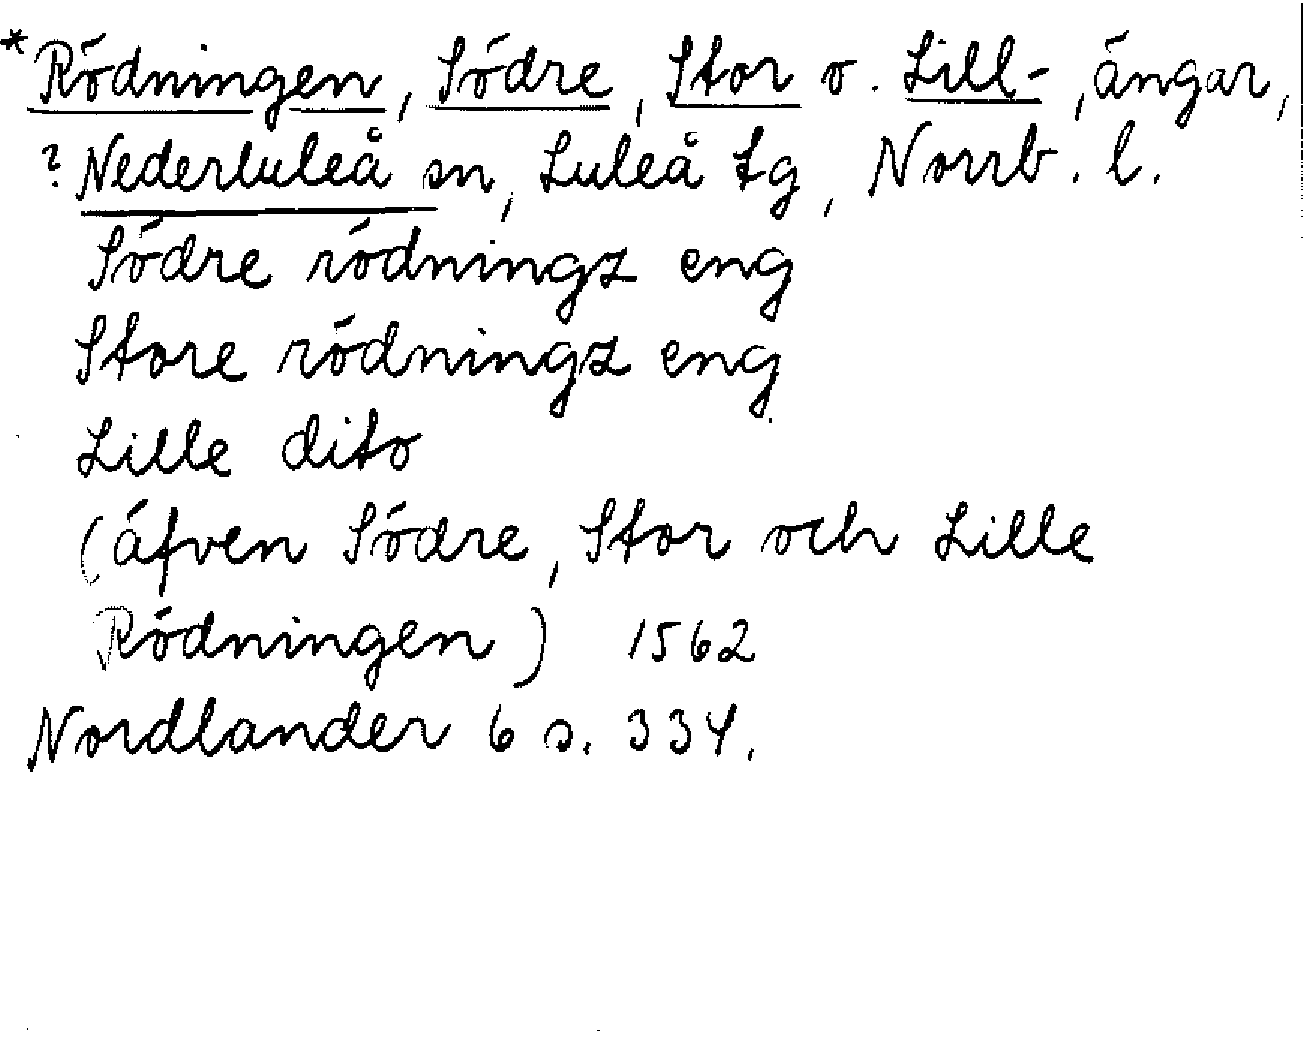 *Rödningen, Södre, Stor o. Lill-, ängar,
? Nederluleå sn, Luleå tg, Norrb. l.
Södre rödningz eng
Store rödningz eng
Lille dito
(äfven Södre, Stor och Lille
Rödningen) 1562
Nordlander 6 s. 334.